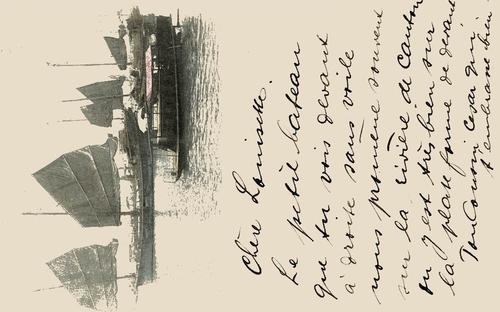 Chère Louisette.
Le petit bateau
que tu vois devant
à droite sans voile
nous promène souvent
sur la rivière de Canton
on y est très bien sur
la plate forme de devant
Ton Cousin
t'embrasse bien